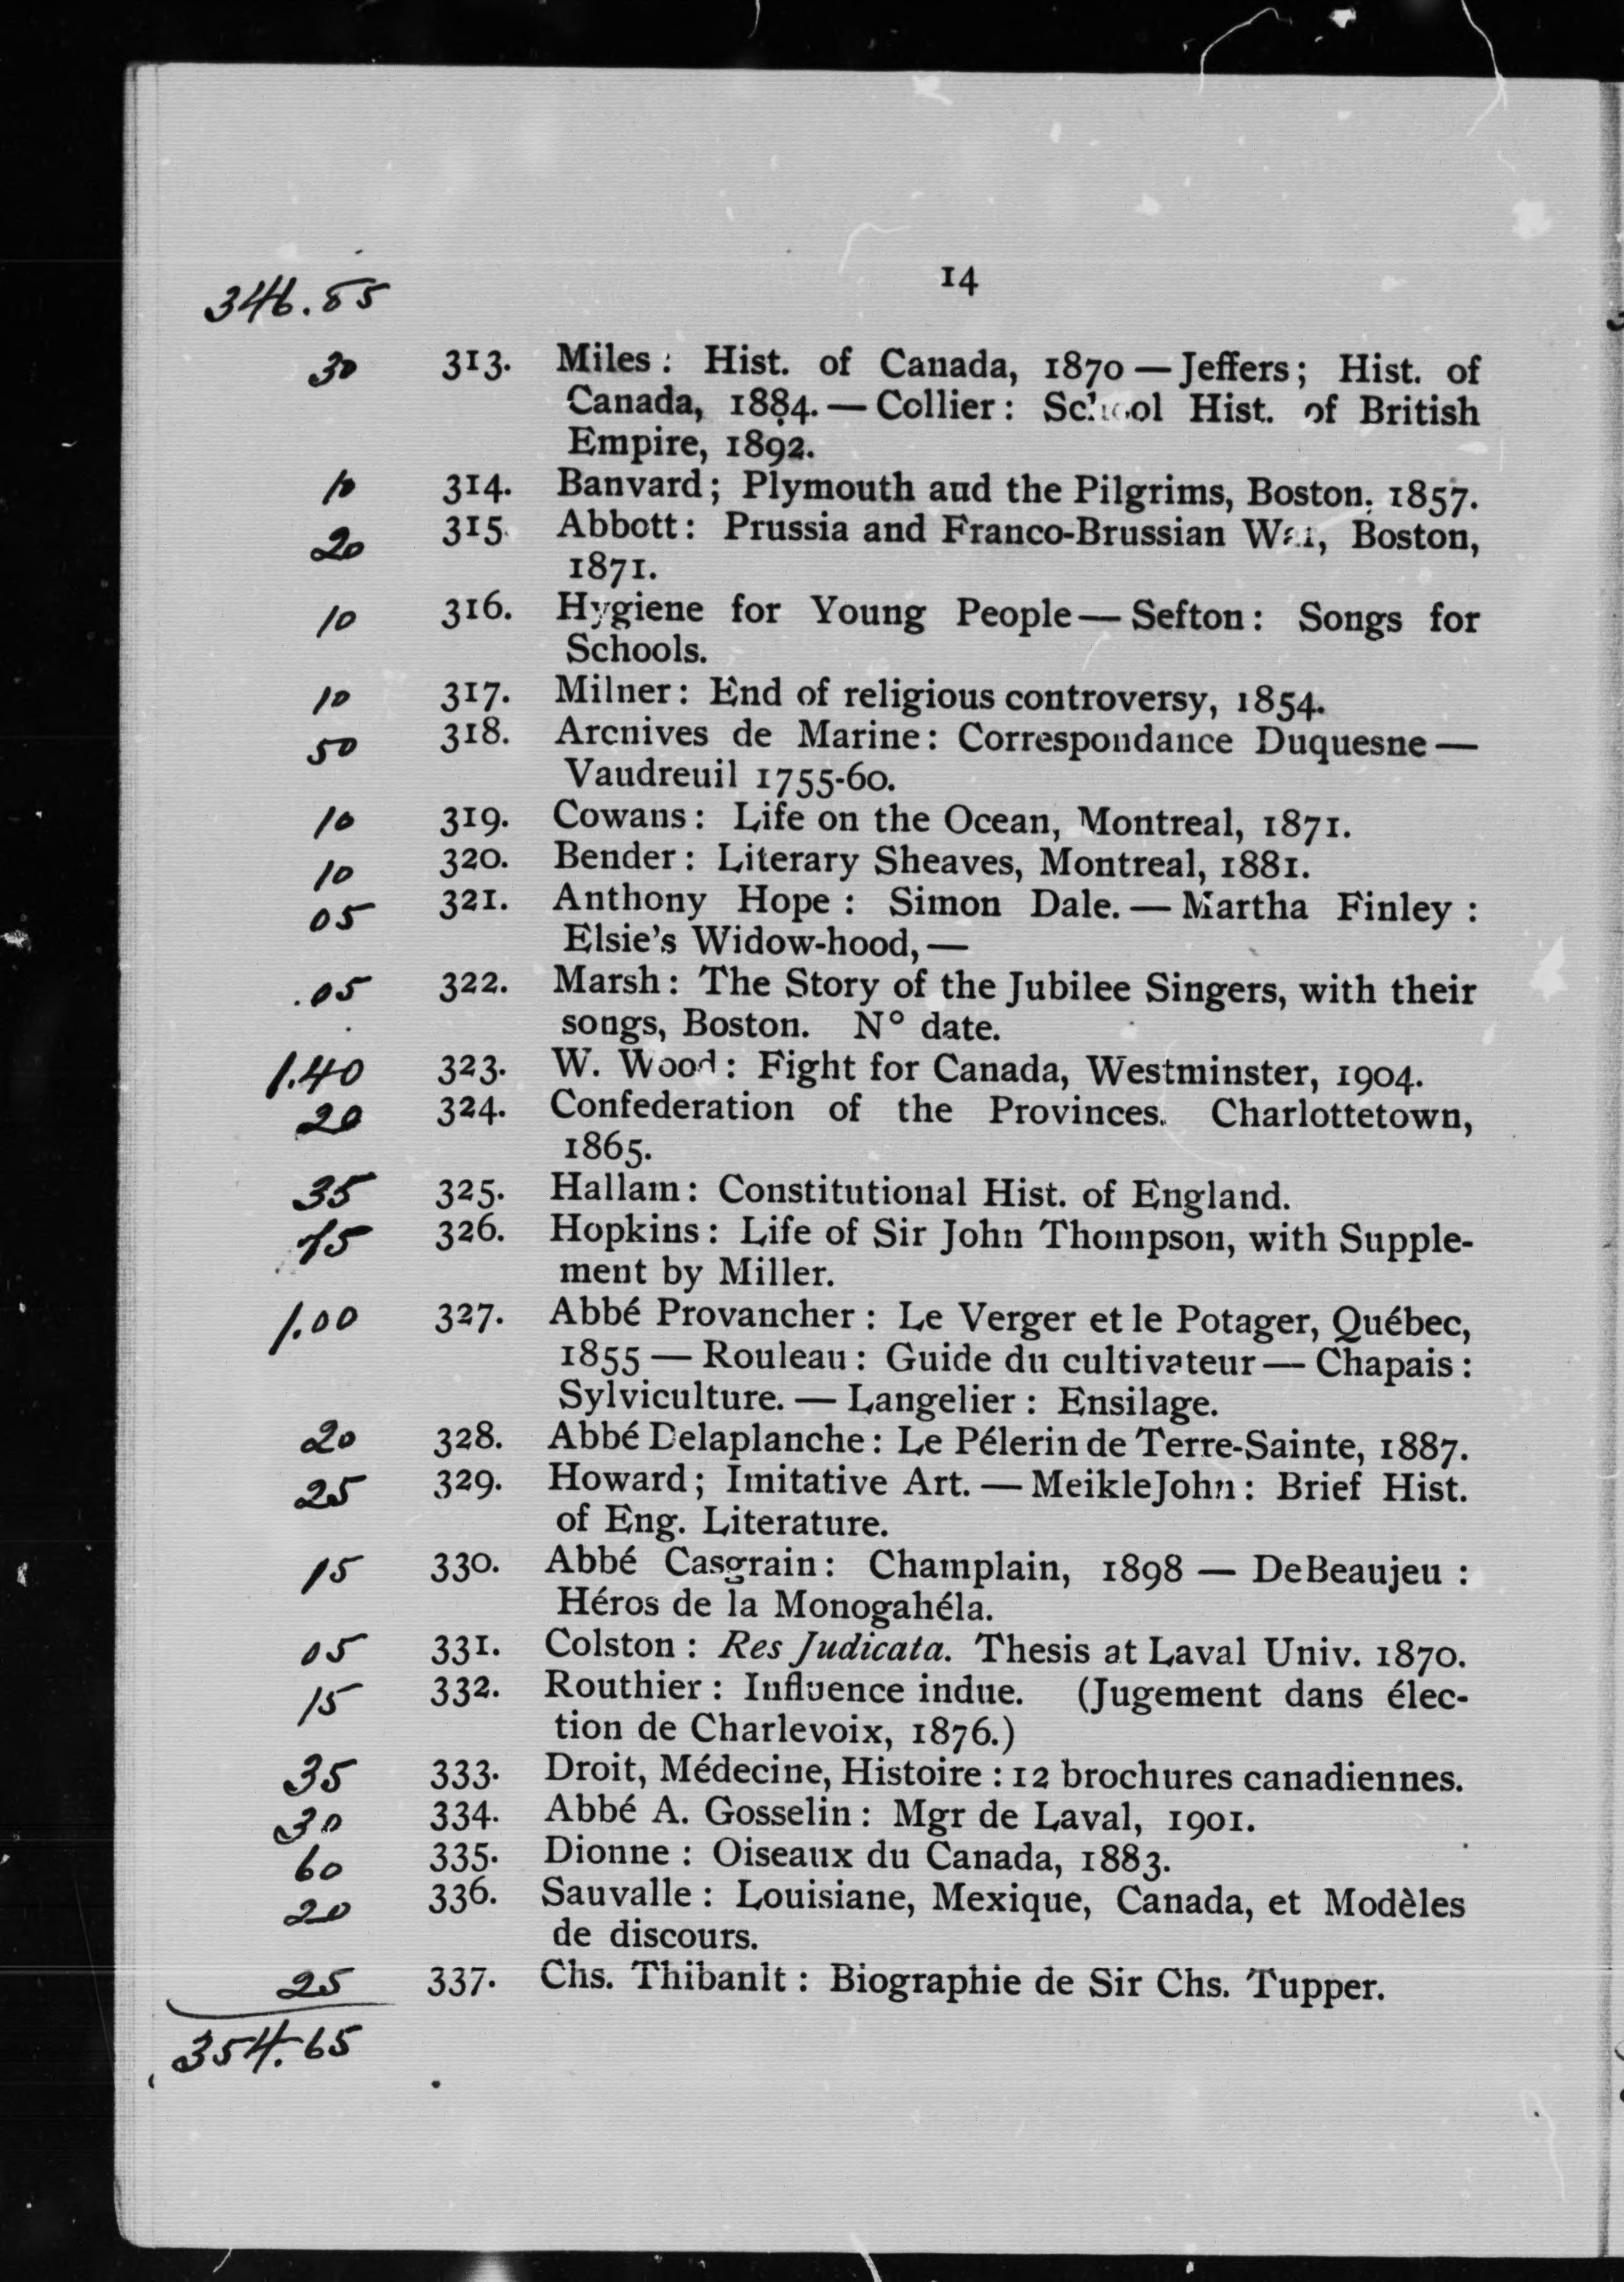 14
346.85
30 313. Miles : Hist. of Canada, 1870 — Jeffers ; Hist. of
Canada, 1884. — Collier : School Hist. of British
Empire, 1892.
10 314. Banvard ; Plymouth aud the Pilgrims, Boston, 1857.
20 315. Abbott : Prussia and Franco-Brussian War, Boston,
1871.
10 316. Hygiene for Young People — Sefton : Songs for
Schools.
10 317. Milner : End of religious controversy, 1854.
50 318. Arcnives de Marine : Correspondance Duquesne —
Vaudreuil 1755-60.
10 319. Cowans : Life on the Ocean, Montreal, 1871.
10 320. Bender : Literary Sheaves, Montreal, 1881.
05 321. Anthony Hope : Simon Dale. — Martha Finley :
Elsie's Widow-hood, —
.05 322. Marsh : The Story of the Jubilee Singers, with their
songs, Boston. N° date.
1.40 323. W. Wood : Fight for Canada, Westminster, 1904.
20 324. Confederation of the Provinces. Charlottetown,
1865.
35 325. Hallam : Constitutional Hist. of England.
75 326. Hopkins : Life of Sir John Thompson, with Supple-
ment by Miller.
1.00 327. Abbé Provancher : Le Verger et le Potager, Québec,
1855 — Rouleau : Guide du cultivateur — Chapais :
Sylviculture. — Langelier : Ensilage.
20 328. Abbé Delaplanche : Le Pélerin de Terre-Sainte, 1887.
25 329. Howard ; Imitative Art. — MeikleJohn : Brief Hist.
of Eng. Literature.
15 330. Abbé Casgrain : Champlain, 1898 — DeBeaujeu :
Héros de la Monogahéla.
05 331. Colston : Res Judicata. Thesis at Laval Univ. 1870.
15 332. Routhier : Influence indue. (Jugement dans élec-
tion de Charlevoix, 1876.)
35 333. Droit, Médecine, Histoire : 12 brochures canadiennes.
30 334. Abbé A. Gosselin : Mgr de Laval, 1901.
60 335. Dionne : Oiseaux du Canada, 1883.
20 336. Sauvalle : Louisiane, Mexique, Canada, et Modèles
de discours.
25 337. Chs. Thibanlt : Biographie de Sir Chs. Tupper.
354.65